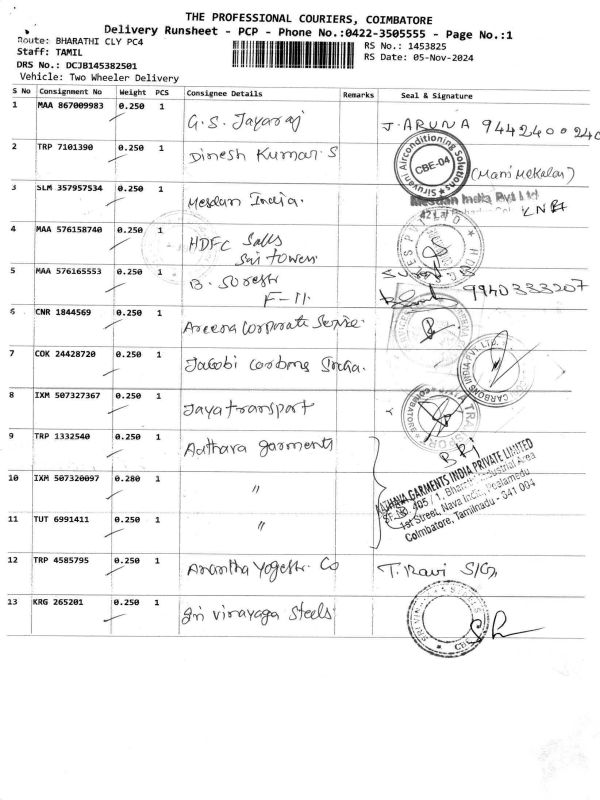 THE PROFESSIONAL COURIERS, COIMBATORE
Delivery Runsheet - PCP - Phone No.:0422-3505555 - Page No.:1
Route: BHARATHI CLY PC4
RS No.: 1453825
Staff: TAMIL
RS Date: 05-Nov-2024
DRS No.: DCJB145382501
Vehicle: Two Wheeler Delivery
S No Consignment No Weight PCS Consignee Details Remarks Seal & Signature
1 MAA 867009983 0.250 1 G. S. Jayaraj J. ARUNA 9442400240
2 TRP 7101390 0.250 1 Dinesh Kumar. S Siruvani Airconditioning Solutions CBE-04 (Manimekalai)
3 SLM 357957534 0.250 1 Mesdan India. Mesdan India Pvt Ltd
4 MAA 576158740 0.250 1 HDFC Sales
Sai Towers
5 MAA 576165553 0.250 1 B. Suresh 9940333207
F-11.
6 CNR 1844569 0.250 1 Areena Corporate Service.
7 COK 24428720 0.250 1 Jacobi Carbons India. CARBONS INDIA PVT. LTD.
8 IXM 507327367 0.250 1 Jaya transport
9 TRP 1332540 0.250 1 Aathava garments BRI
10 IXM 507320097 0.280 1 "
KATHAVA GARMENTS INDIA PRIVATE LIMITED
SF.No. 405 / 1, Bharathi Industrial Area
1st Street, Nava India, Peelamedu
Coimbatore, Tamilnadu - 641 004
11 TUT 6991411 0.250 1 "
12 TRP 4585795 0.250 1 Anantha Yogesh. Co T. Ravi S/G
13 KRG 265201 0.250 1 Sri Vinayaga Steels